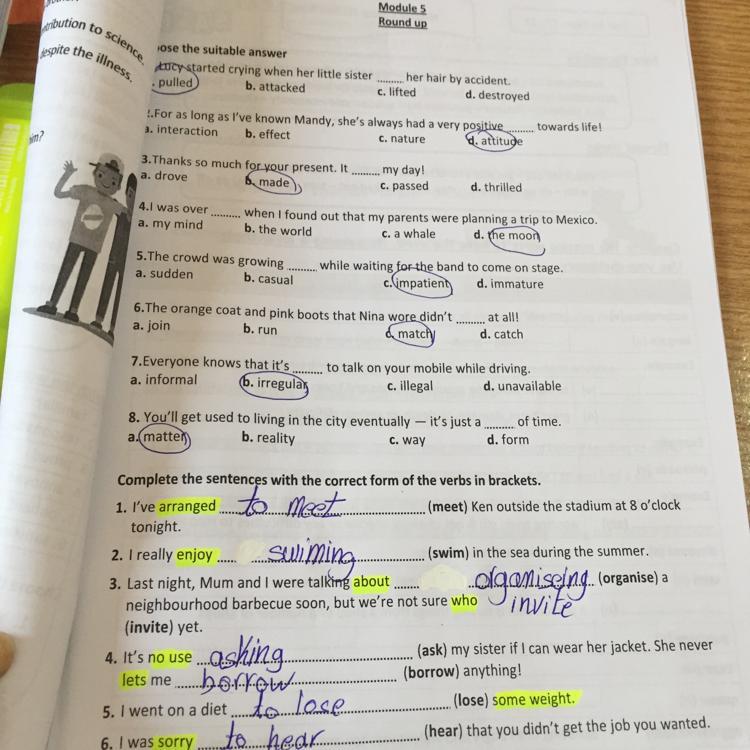 ntribution to science.
despite the illness.
him?
Module 5
Round up
ose the suitable answer
Lucy started crying when her little sister ......... her hair by accident.
. pulled b. attacked c. lifted d. destroyed
2.For as long as I've known Mandy, she's always had a very positive ......... towards life!
a. interaction b. effect c. nature d. attitude
3.Thanks so much for your present. It ......... my day!
a. drove b. made c. passed d. thrilled
4.I was over ......... when I found out that my parents were planning a trip to Mexico.
a. my mind b. the world c. a whale d. the moon
5.The crowd was growing ......... while waiting for the band to come on stage.
a. sudden b. casual c. impatient d. immature
6.The orange coat and pink boots that Nina wore didn't ......... at all!
a. join b. run c. match d. catch
7.Everyone knows that it's ......... to talk on your mobile while driving.
a. informal b. irregular c. illegal d. unavailable
8. You'll get used to living in the city eventually — it's just a ......... of time.
a. matter b. reality c. way d. form
Complete the sentences with the correct form of the verbs in brackets.
1. I've arranged to meet (meet) Ken outside the stadium at 8 o'clock
tonight.
2. I really enjoy swiming (swim) in the sea during the summer.
3. Last night, Mum and I were talking about organiseing (organise) a
neighbourhood barbecue soon, but we're not sure who invite
(invite) yet.
4. It's no use asking (ask) my sister if I can wear her jacket. She never
lets me borrow (borrow) anything!
5. I went on a diet to lose (lose) some weight.
6. I was sorry to hear (hear) that you didn't get the job you wanted.